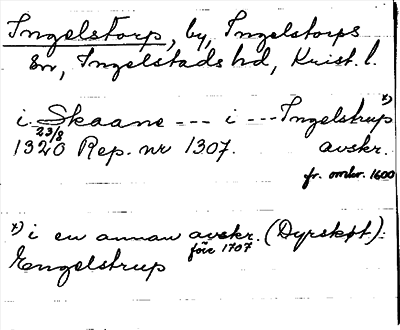 Ingelstorp, by, Ingelstorps
sn, Ingelstads hd, Krist. l.
i Skaane --- i --- Ingelstrup x)
23/8
1320 Rep. nr 1307. avskr.
fr. omkr. 1600
x) i en annan avskr. (Dyrskøt):
före 1707
Engelstrup